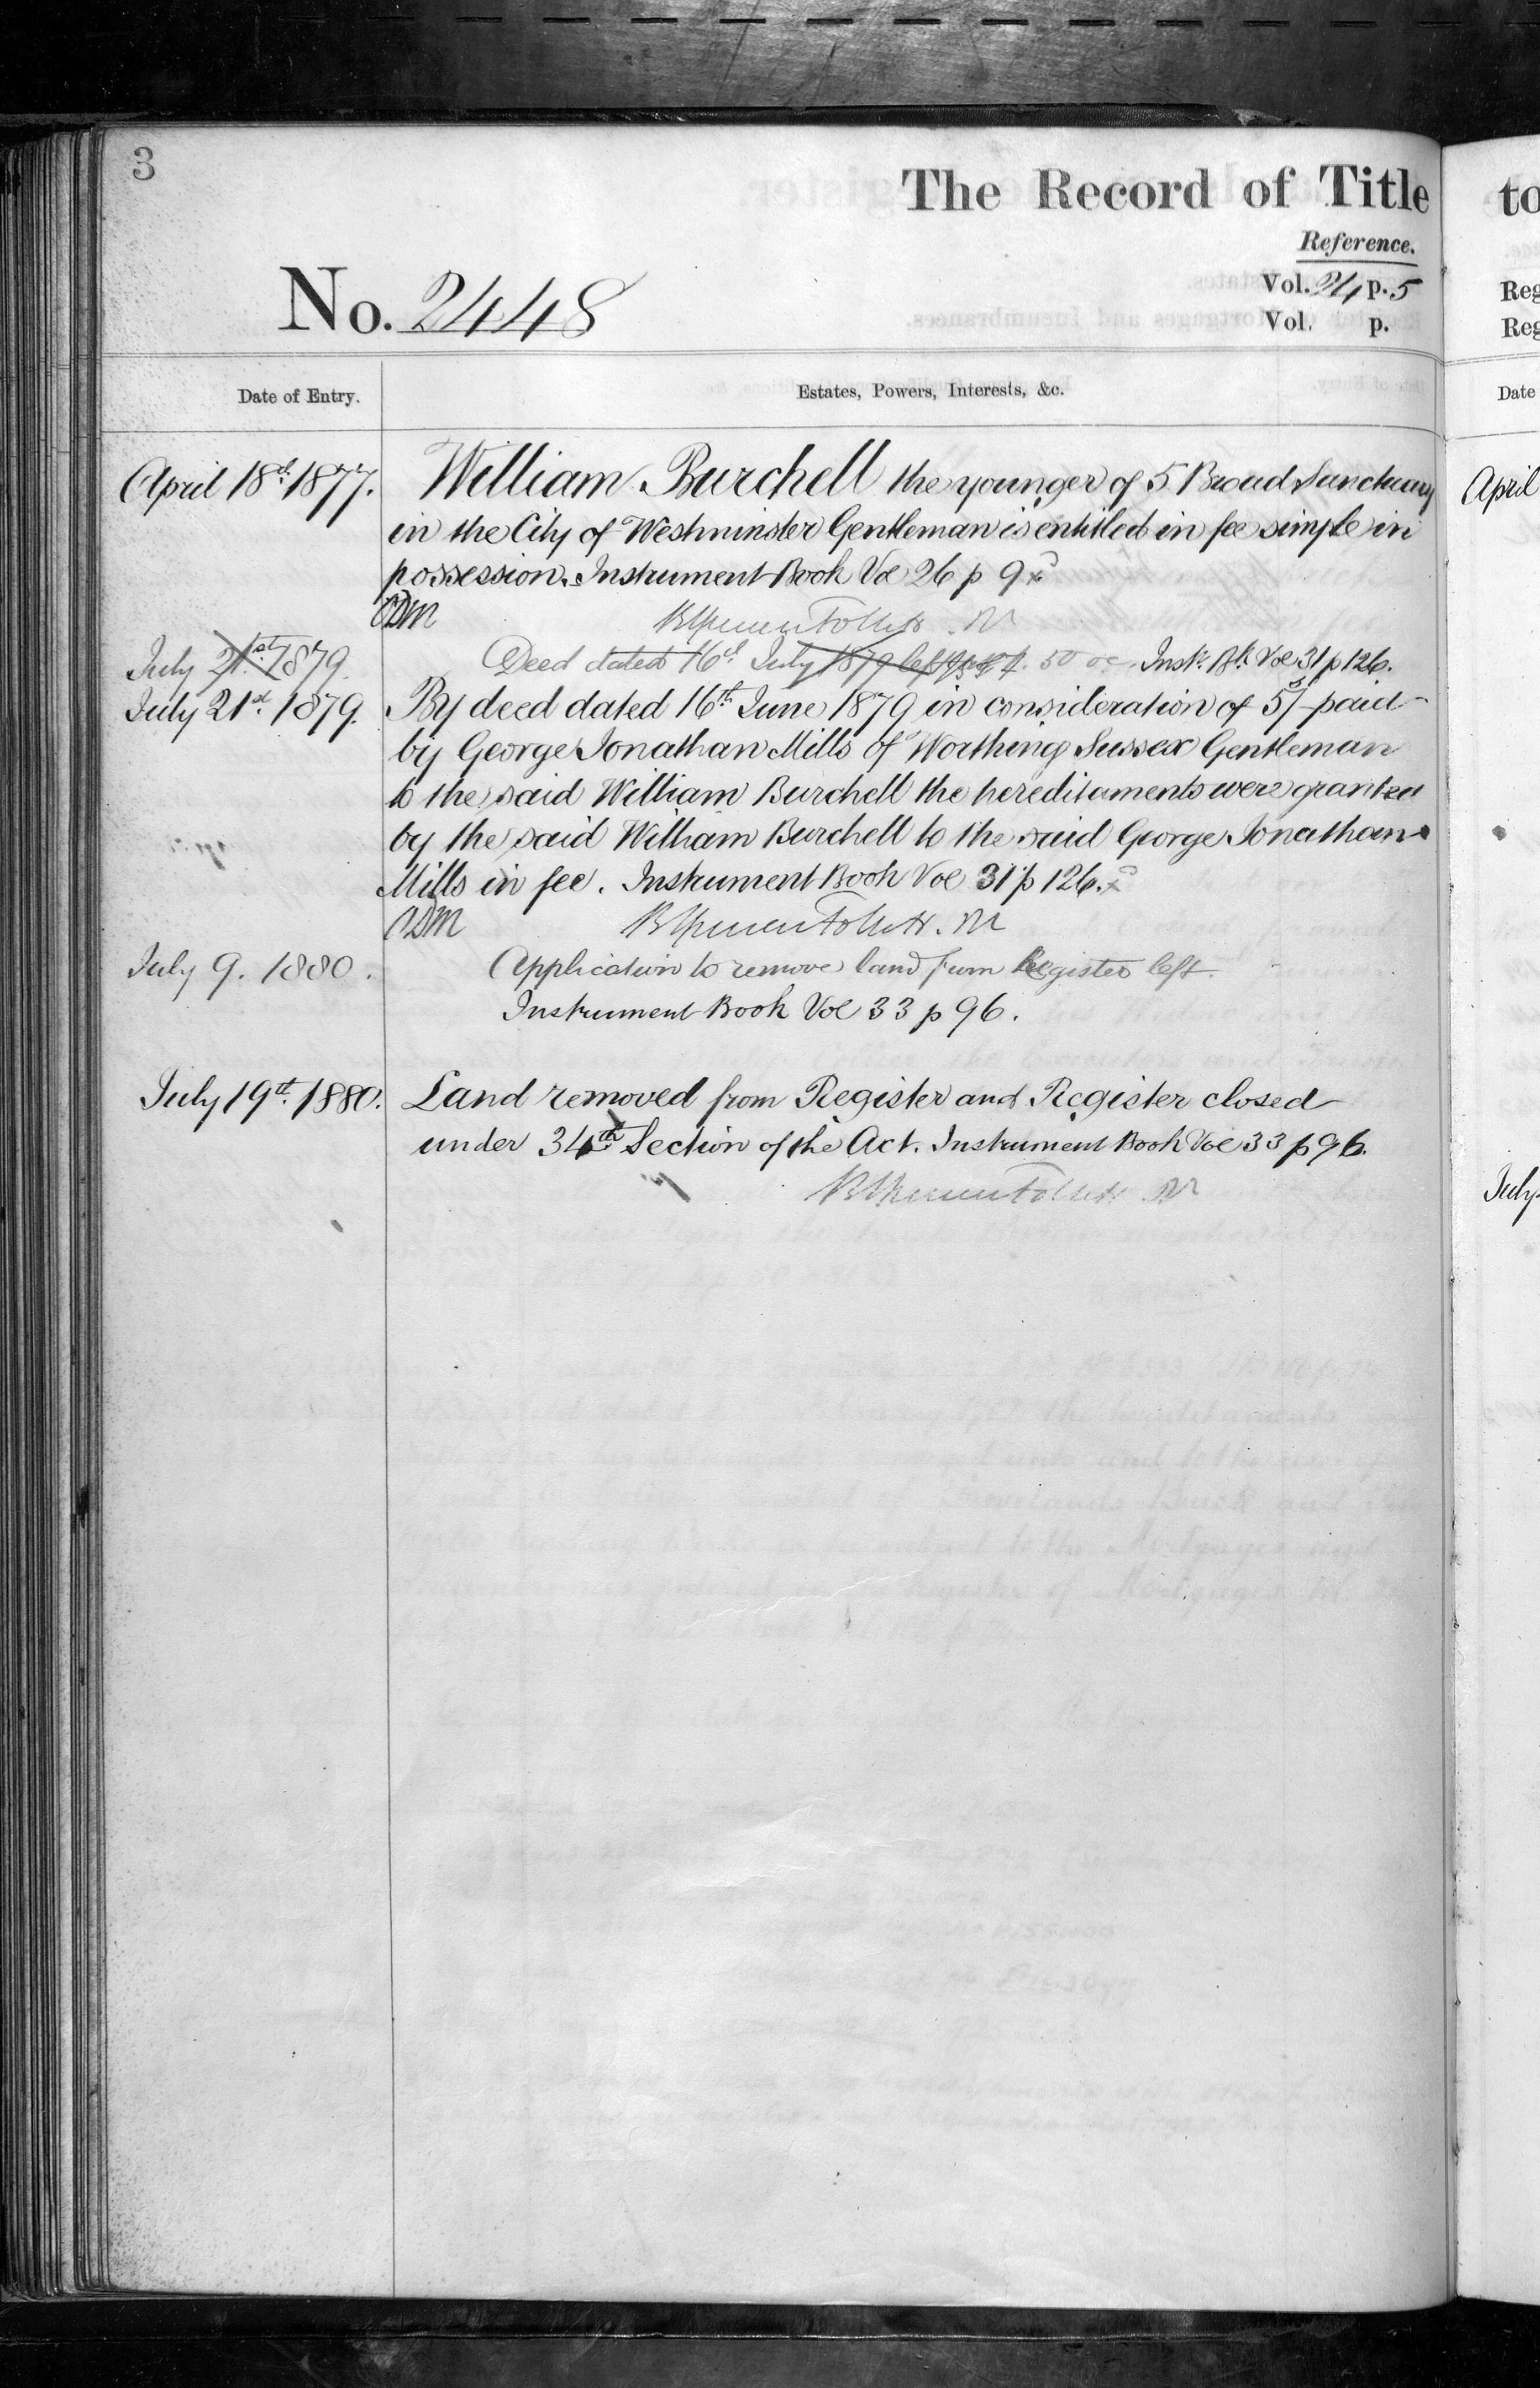 3
The Record of Title
Reference.
No. 2448
Vol. 24 p. 5
Vol. p.
Date of Entry.
Estates, Powers, Interests, &c.
April 18th 1877. William Burchell the younger of 5 Broad Sanctuary
in the City of Westminster Gentleman is entitled in fee simple in
possession. Instrument Book Vol 26 p 9
July 21st 1879. Deed dated 16th July 1879 left Inst. Bk Vol 31 p 126.
July 21st 1879. By deed dated 16th June 1879 in consideration of 5/- paid
by George Jonathan Mills of Worthing Sussex Gentleman
to the said William Burchell the hereditaments were granted
by the said William Burchell to the said George Jonathan
Mills in fee. Instrument Book Vol 31 p 126.
July 9. 1880. Application to remove land from Register left.
Instrument Book Vol 33 p 96.
July 19th 1880. Land removed from Register and Register closed
under 34th Section of the Act. Instrument Book Vol 33 p 96.
to
Reg
Reg
Date
April
July